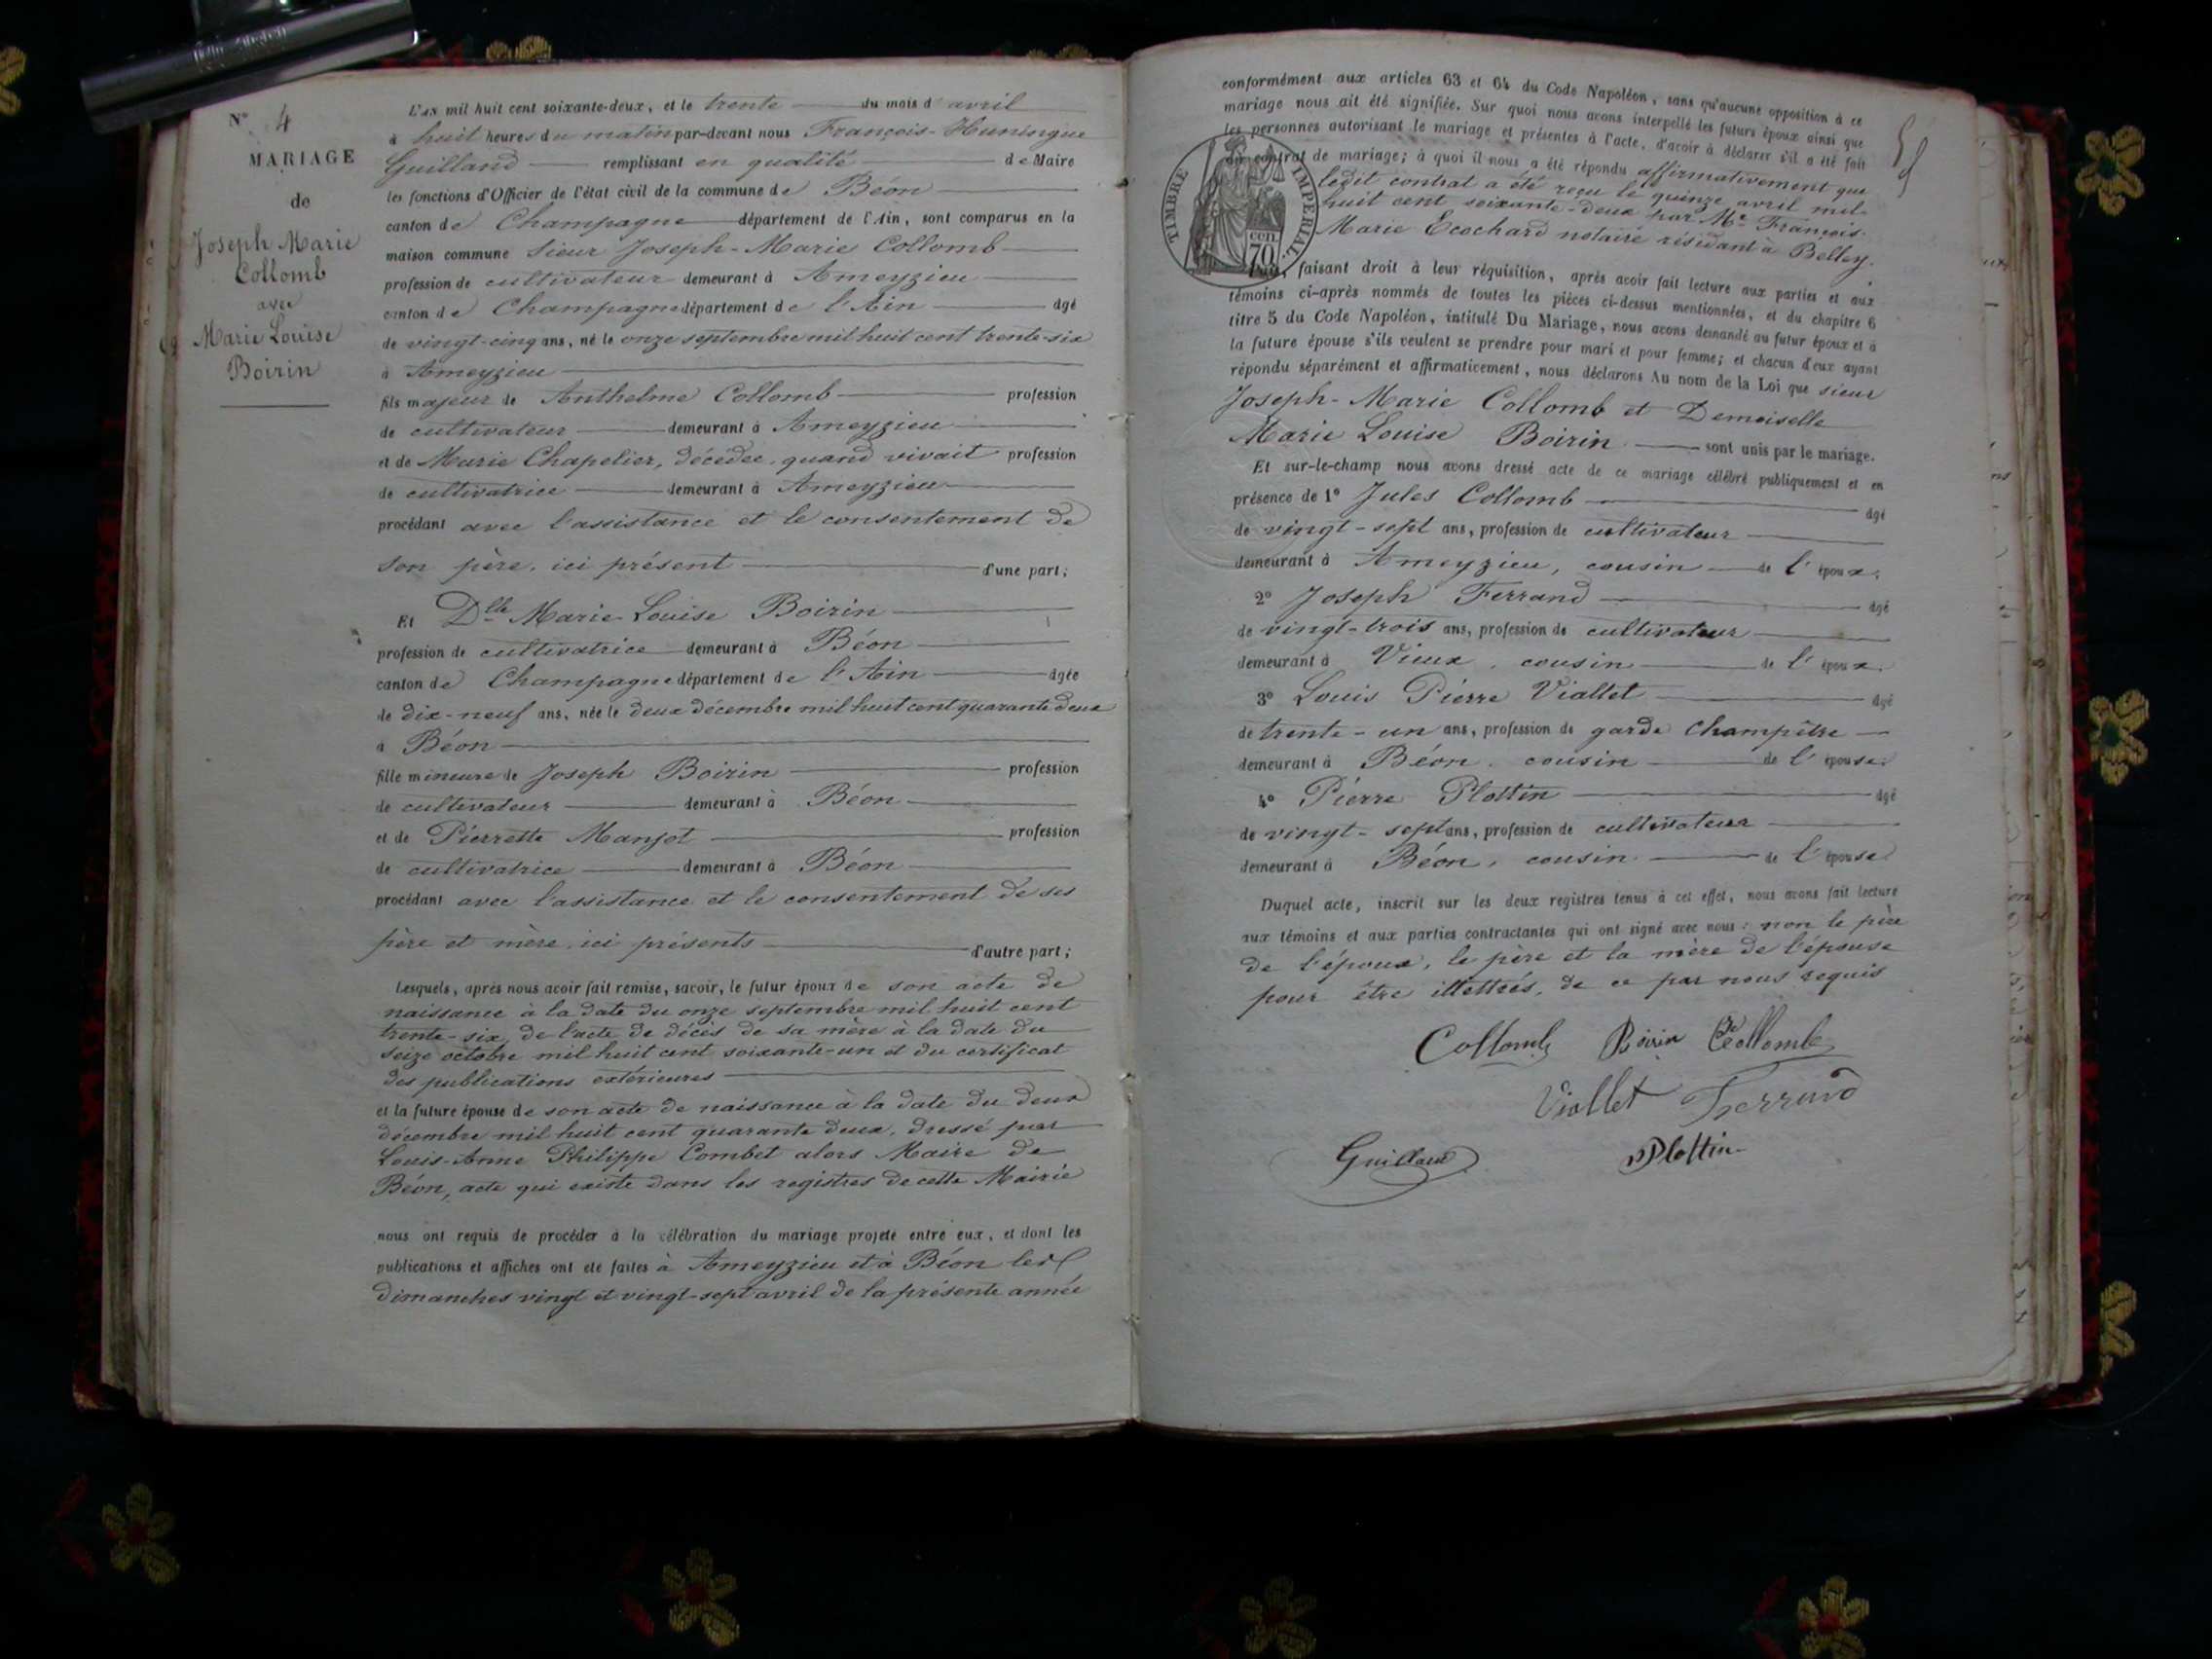 N° 4
MARIAGE
de
Joseph Marie
Collomb
avec
Marie Louise
Boirin
L'AN mil huit cent soixante-deux, et le trente du mois d'avril
à huit heures du matin par-devant nous François-Huningue
Guilland remplissant en qualité de Maire
les fonctions d'Officier de l'état civil de la commune de Béon
canton de Champagne département de l'Ain, sont comparus en la
maison commune sieur Joseph-Marie Collomb
profession de cultivateur demeurant à Ameyzieu
canton de Champagne département de l'Ain âgé
de vingt-cinq ans, né le onze septembre mil huit cent trente-six
à Ameyzieu
fils majeur de Anthelme Collomb profession
de cultivateur demeurant à Ameyzieu
et de Marie Chapelier, décédée, quand vivait profession
de cultivatrice demeurant à Ameyzieu
procédant avec l'assistance et le consentement de
son père, ici présent d'une part;
Et Dlle Marie-Louise Boirin
profession de cultivatrice demeurant à Béon
canton de Champagne département de l'Ain âgée
de dix-neuf ans, née le deux décembre mil huit cent quarante deux
à Béon
fille mineure de Joseph Boirin profession
de cultivateur demeurant à Béon
et de Pierrette Manjot profession
de cultivatrice demeurant à Béon
procédant avec l'assistance et le consentement de ses
père et mère, ici présents d'autre part;
Lesquels, après nous avoir fait remise, savoir, le futur époux de son acte de
naissance à la date du onze septembre mil huit cent
trente-six, de l'acte de décès de sa mère à la date du
seize octobre mil huit cent soixante-un et du certificat
des publications extérieures
et la future épouse de son acte de naissance à la date du deux
décembre mil huit cent quarante deux, dressé par
Louis-Anne Philippe Combet alors Maire de
Béon, acte qui existe dans les registres de cette Mairie
nous ont requis de procéder à la célébration du mariage projeté entre eux, et dont les
publications et affiches ont été faites à Ameyzieu et à Béon les
dimanches vingt et vingt-sept avril de la présente année
conformément aux articles 63 et 64 du Code Napoléon, sans qu'aucune opposition à ce
mariage nous ait été signifiée. Sur quoi nous avons interpellé les futurs époux ainsi que
les personnes autorisant le mariage et présentes à l'acte, d'avoir à déclarer s'il a été fait
un contrat de mariage; à quoi il nous a été répondu affirmativement que
ledit contrat a été reçu le quinze avril mil-
huit cent soixante-deux par Me François-
Marie Ecochard notaire résidant à Belley.
TIMBRE IMPÉRIAL
70 cen.
faisant droit à leur réquisition, après avoir fait lecture aux parties et aux
témoins ci-après nommés de toutes les pièces ci-dessus mentionnées, et du chapitre 6
titre 5 du Code Napoléon, intitulé Du Mariage, nous avons demandé au futur époux et à
la future épouse s'ils veulent se prendre pour mari et pour femme; et chacun d'eux ayant
répondu séparément et affirmativement, nous déclarons Au nom de la Loi que sieur
Joseph-Marie Collomb et Demoiselle
Marie Louise Boirin sont unis par le mariage.
Et sur-le-champ nous avons dressé acte de ce mariage célébré publiquement et en
présence de 1° Jules Collomb âgé
de vingt-sept ans, profession de cultivateur
demeurant à Ameyzieu, cousin de l'époux;
2° Joseph Ferrand âgé
de vingt-trois ans, profession de cultivateur
demeurant à Vieux, cousin de l'époux.
3° Louis Pierre Viallet âgé
de trente-un ans, profession de garde Champêtre
demeurant à Béon, cousin de l'épouse.
4° Pierre Plottin âgé
de vingt-sept ans, profession de cultivateur
demeurant à Béon, cousin de l'épouse
Duquel acte, inscrit sur les deux registres tenus à cet effet, nous avons fait lecture
aux témoins et aux parties contractantes qui ont signé avec nous: non le père
de l'époux, le père et la mère de l'épouse
pour être illettrés, de ce par nous requis
Collomb Boirin Collomb
Viallet Ferrand
Guilland Plottin